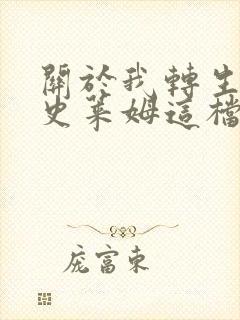 關於我轉生
史萊姆這檔
庞富東